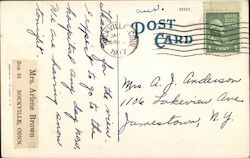 aus.
POST
CARD
ROCKVILLE
CONN.
1947
Thanks for the view.
I expect to go to the
Hospital any day now.
We are having snow
tonight.
Mrs. Arlene Brown
Box 91
ROCKVILLE, CONN.
Mrs A. J. Anderson
106 Lakeview Ave.
Jamestown, N.Y.